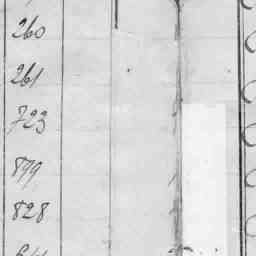 260
261
723
899
828